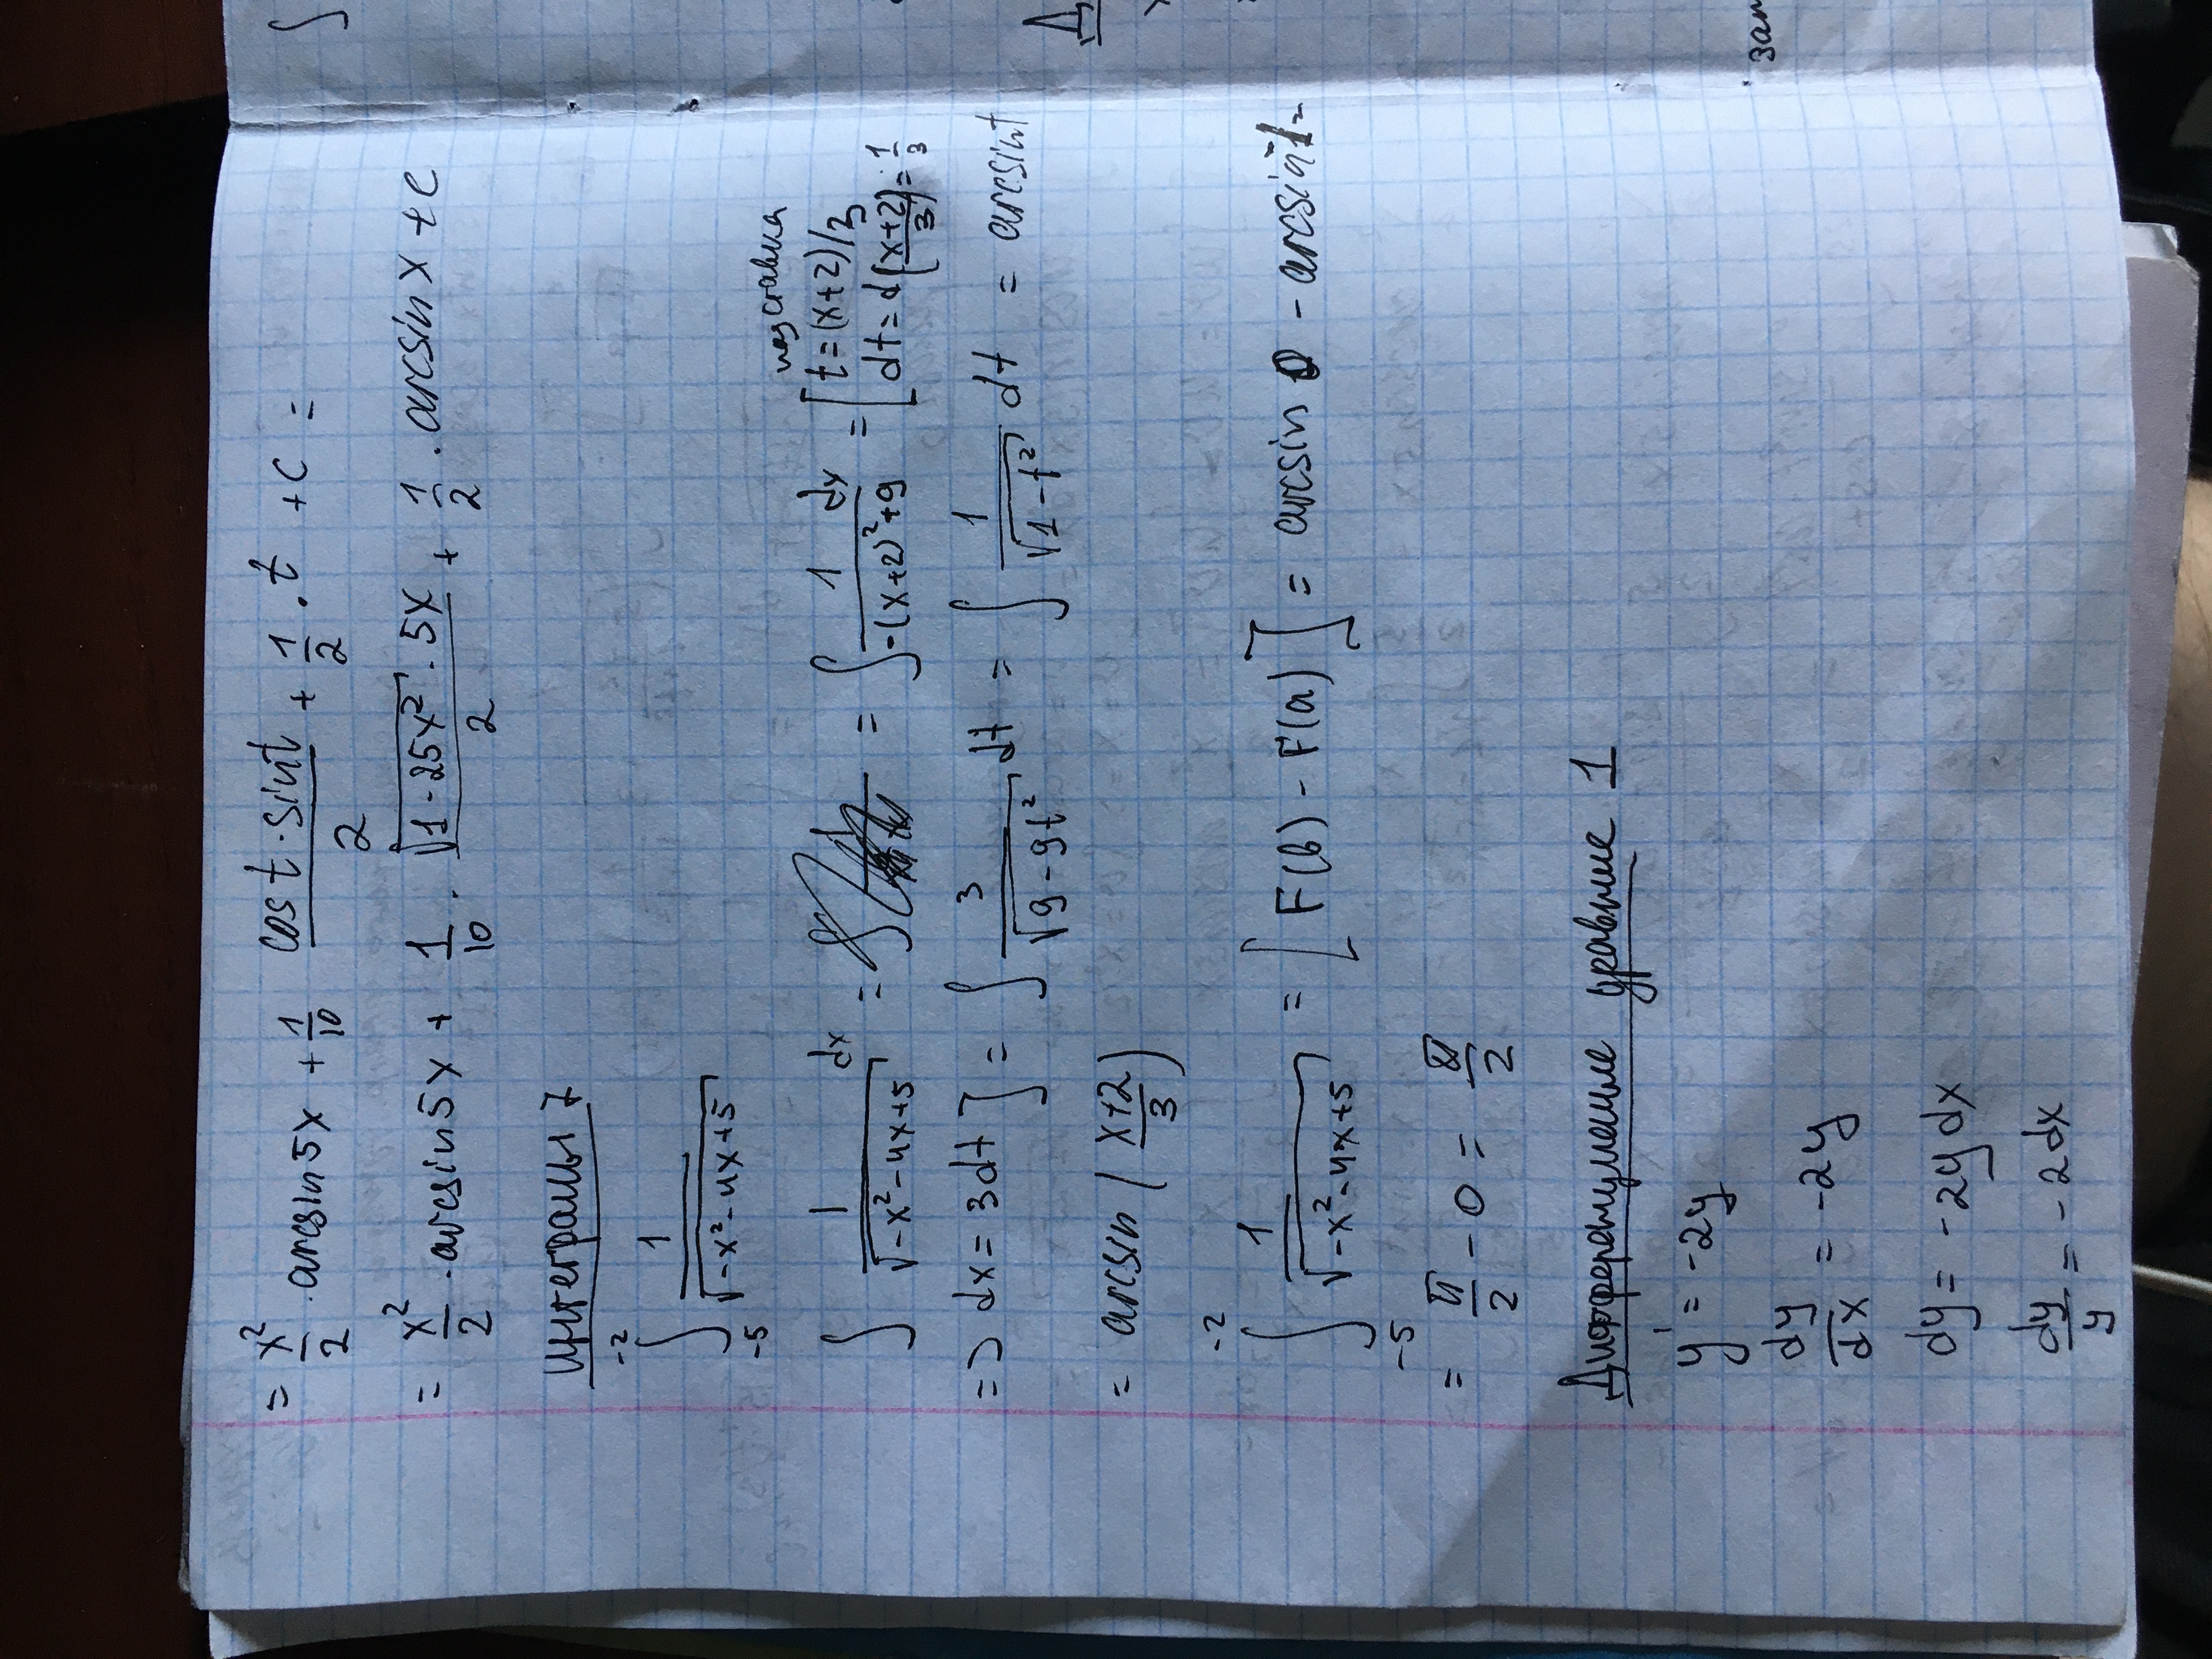 = x²/2 · arcsin5x + 1/10 cost·sint/2 + 1/2 · t + c =
= x²/2 · arcsin5x + 1/10 · √(1-25x²) · 5x/2 + 1/2 · arcsinx + c
Интегралы 7
∫_{-5}^{-2} 1/√(-x²-4x+5)
подставка
∫ 1/√(-x²-4x+5) dx = = ∫ 1/(-(x+2)²+9) dx = [t=(x+2)/3
dt = d((x+2)/3) = 1/3
=> dx = 3dt] = ∫ 3/√(9-9t²) dt = ∫ 1/√(1-t²) dt = arcsint
= arcsin((x+2)/3)
∫_{-5}^{-2} 1/√(-x²-4x+5) = [F(b) - F(a)] = arcsin 0 - arcsin-1 =
= π/2 - 0 = π/2
1
y' = -2y
dy/dx = -2y
dy = -2y dx
dy/y = -2dx
∫
Д
зам